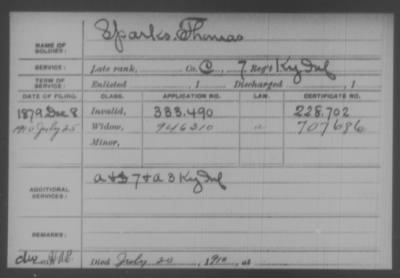 NAME OF SOLDIER: Sparks, Thomas
SERVICE: Late rank, Co. C, 7 Reg't Ky Inf
TERM OF SERVICE: Enlisted , 1 Discharged , 1
DATE OF FILING. CLASS. APPLICATION NO. LAW. CERTIFICATE NO.
1879 Dec 8 Invalid, 333.490 228.702
1910 July 25 Widow, 946310 a 707686
Minor,
ADDITIONAL SERVICES: A & D 7 & A 3 Ky Inf
REMARKS:
Died July 20, 1910, at